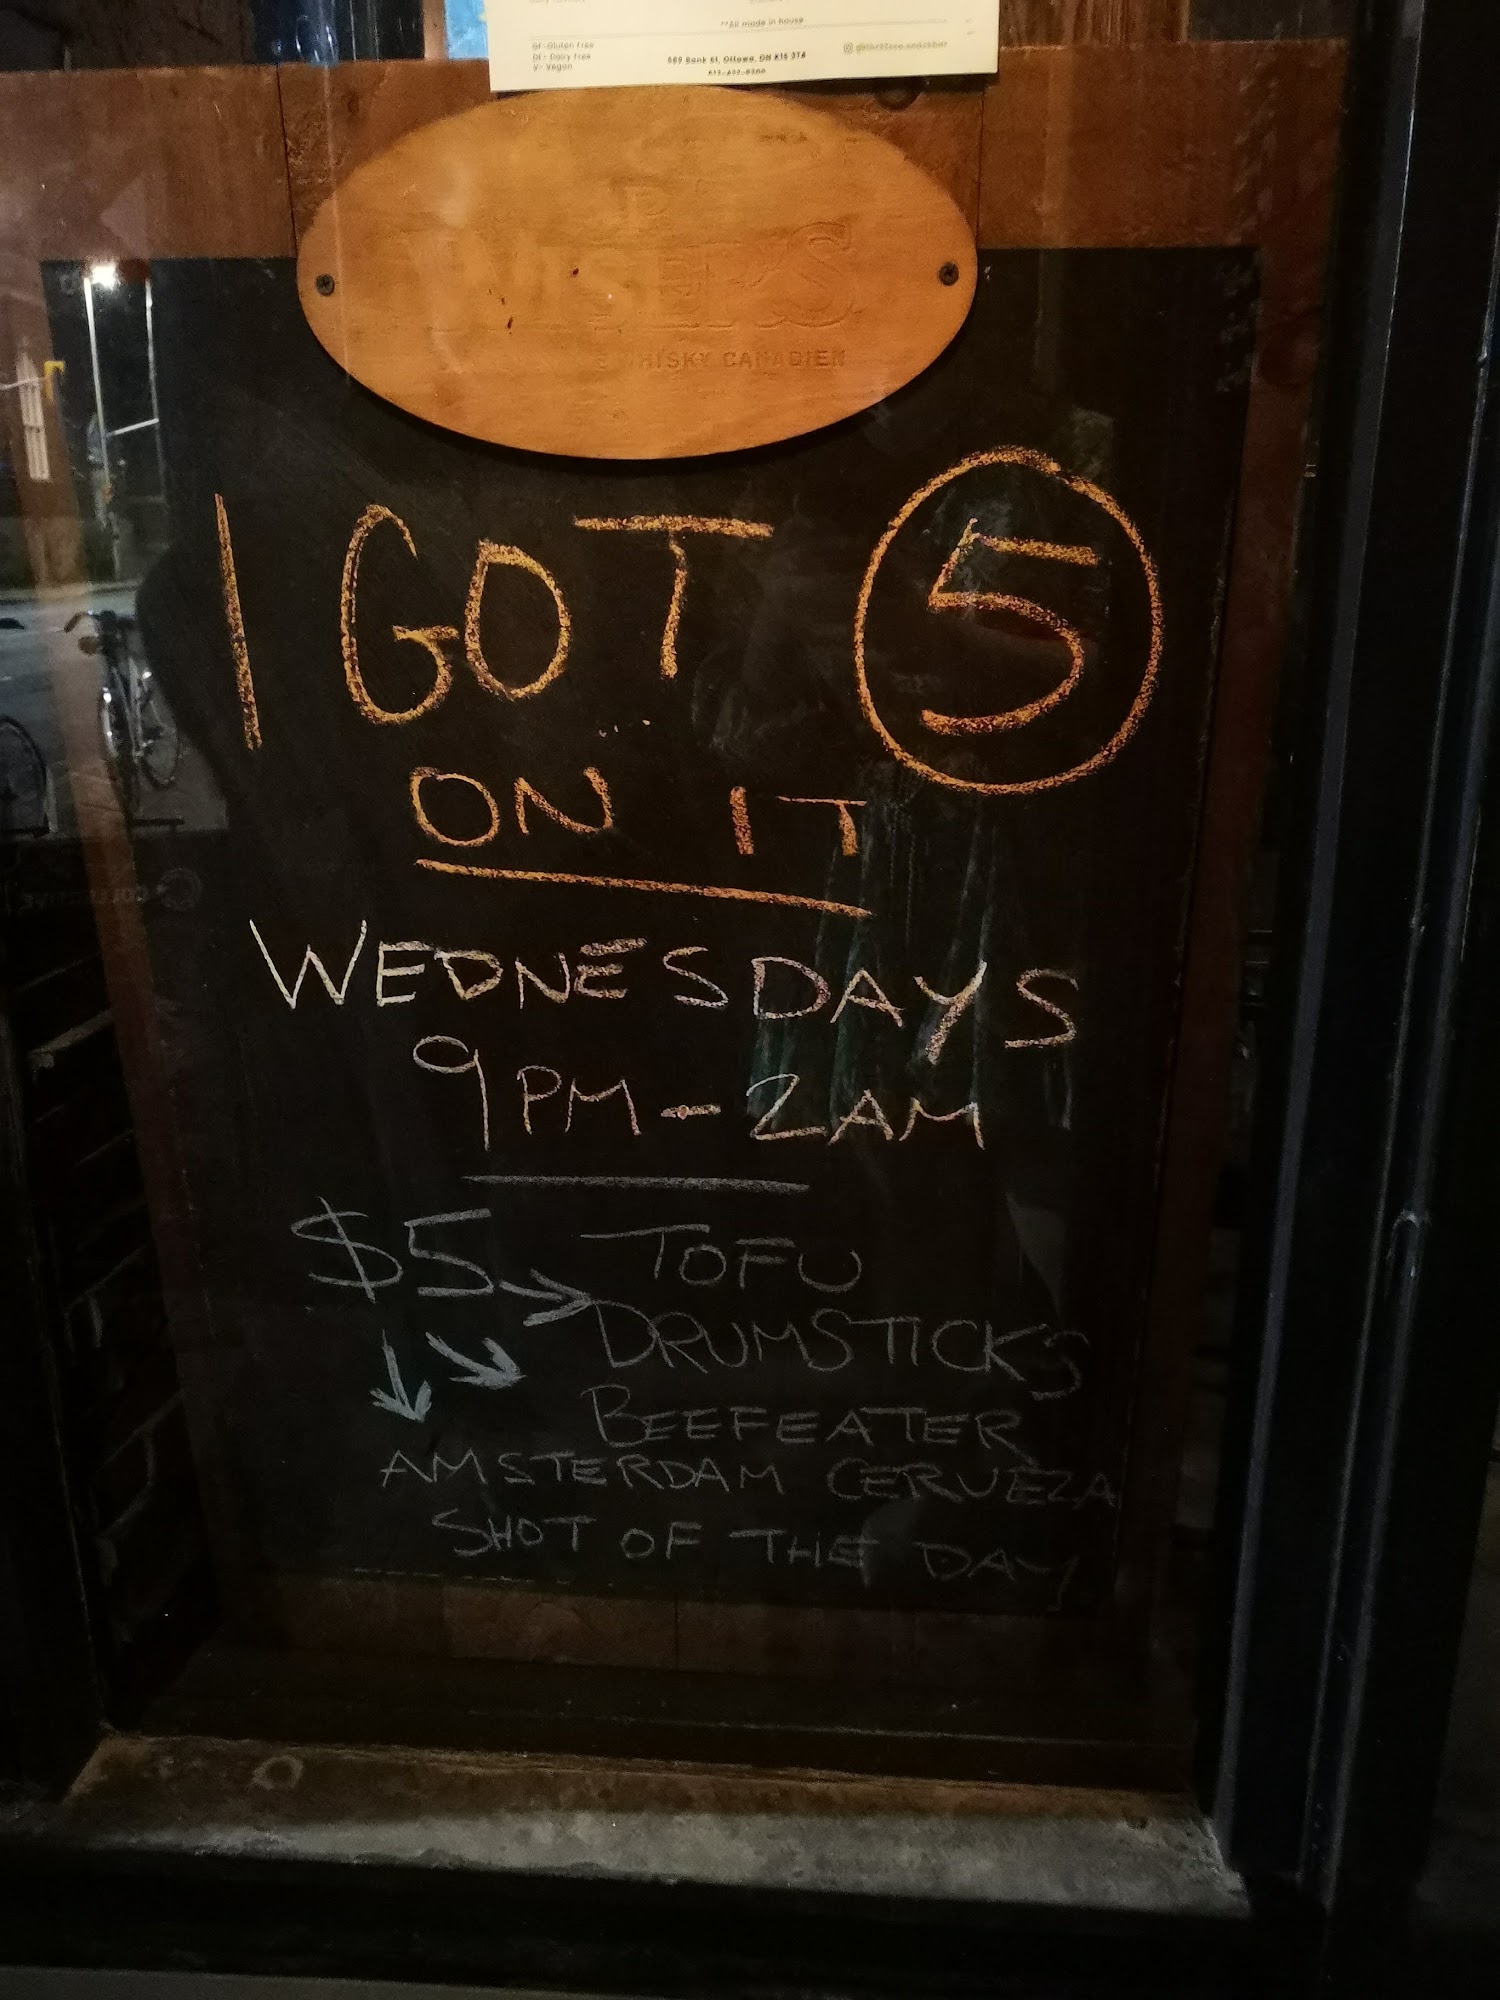 **All made in house
GF-Gluten Free
DF- Dairy Free
V- Vegan
689 Bank St, Ottawa, ON K1S 3T4
WISER'S
WHISKY CANADIEN
I GOT 5
ON IT
WEDNESDAYS
9PM-2AM
$5 → TOFU
DRUMSTICKS
BEEFEATER
AMSTERDAM CERVEZA
SHOT OF THE DAY